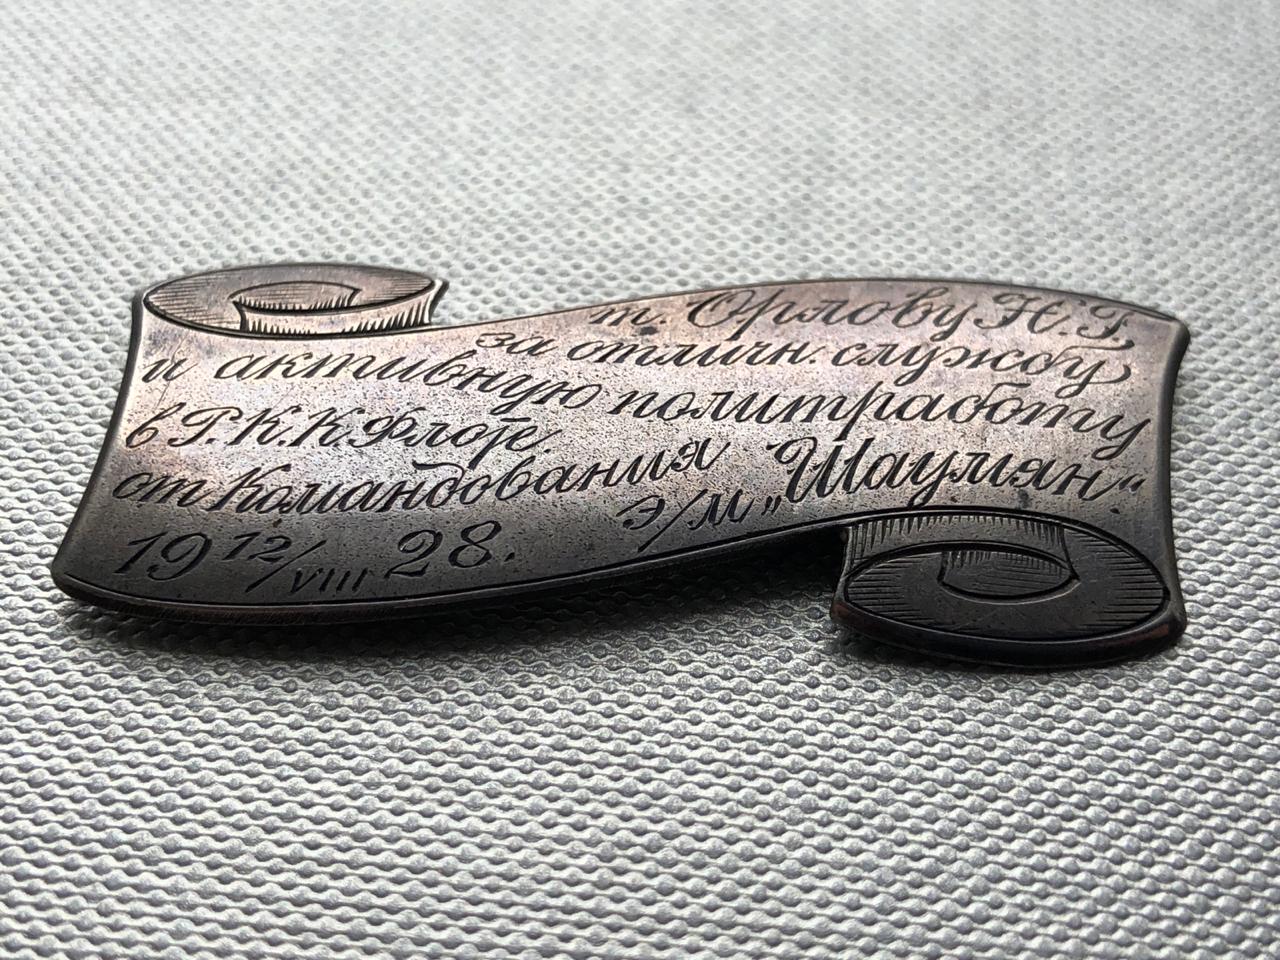 т. Орлову Н. Г.,
за отличн. службу
и активную политработу
в Р.К.К.Флот.
от Командования Э/М „Шаумян“
19 12/VIII 28.